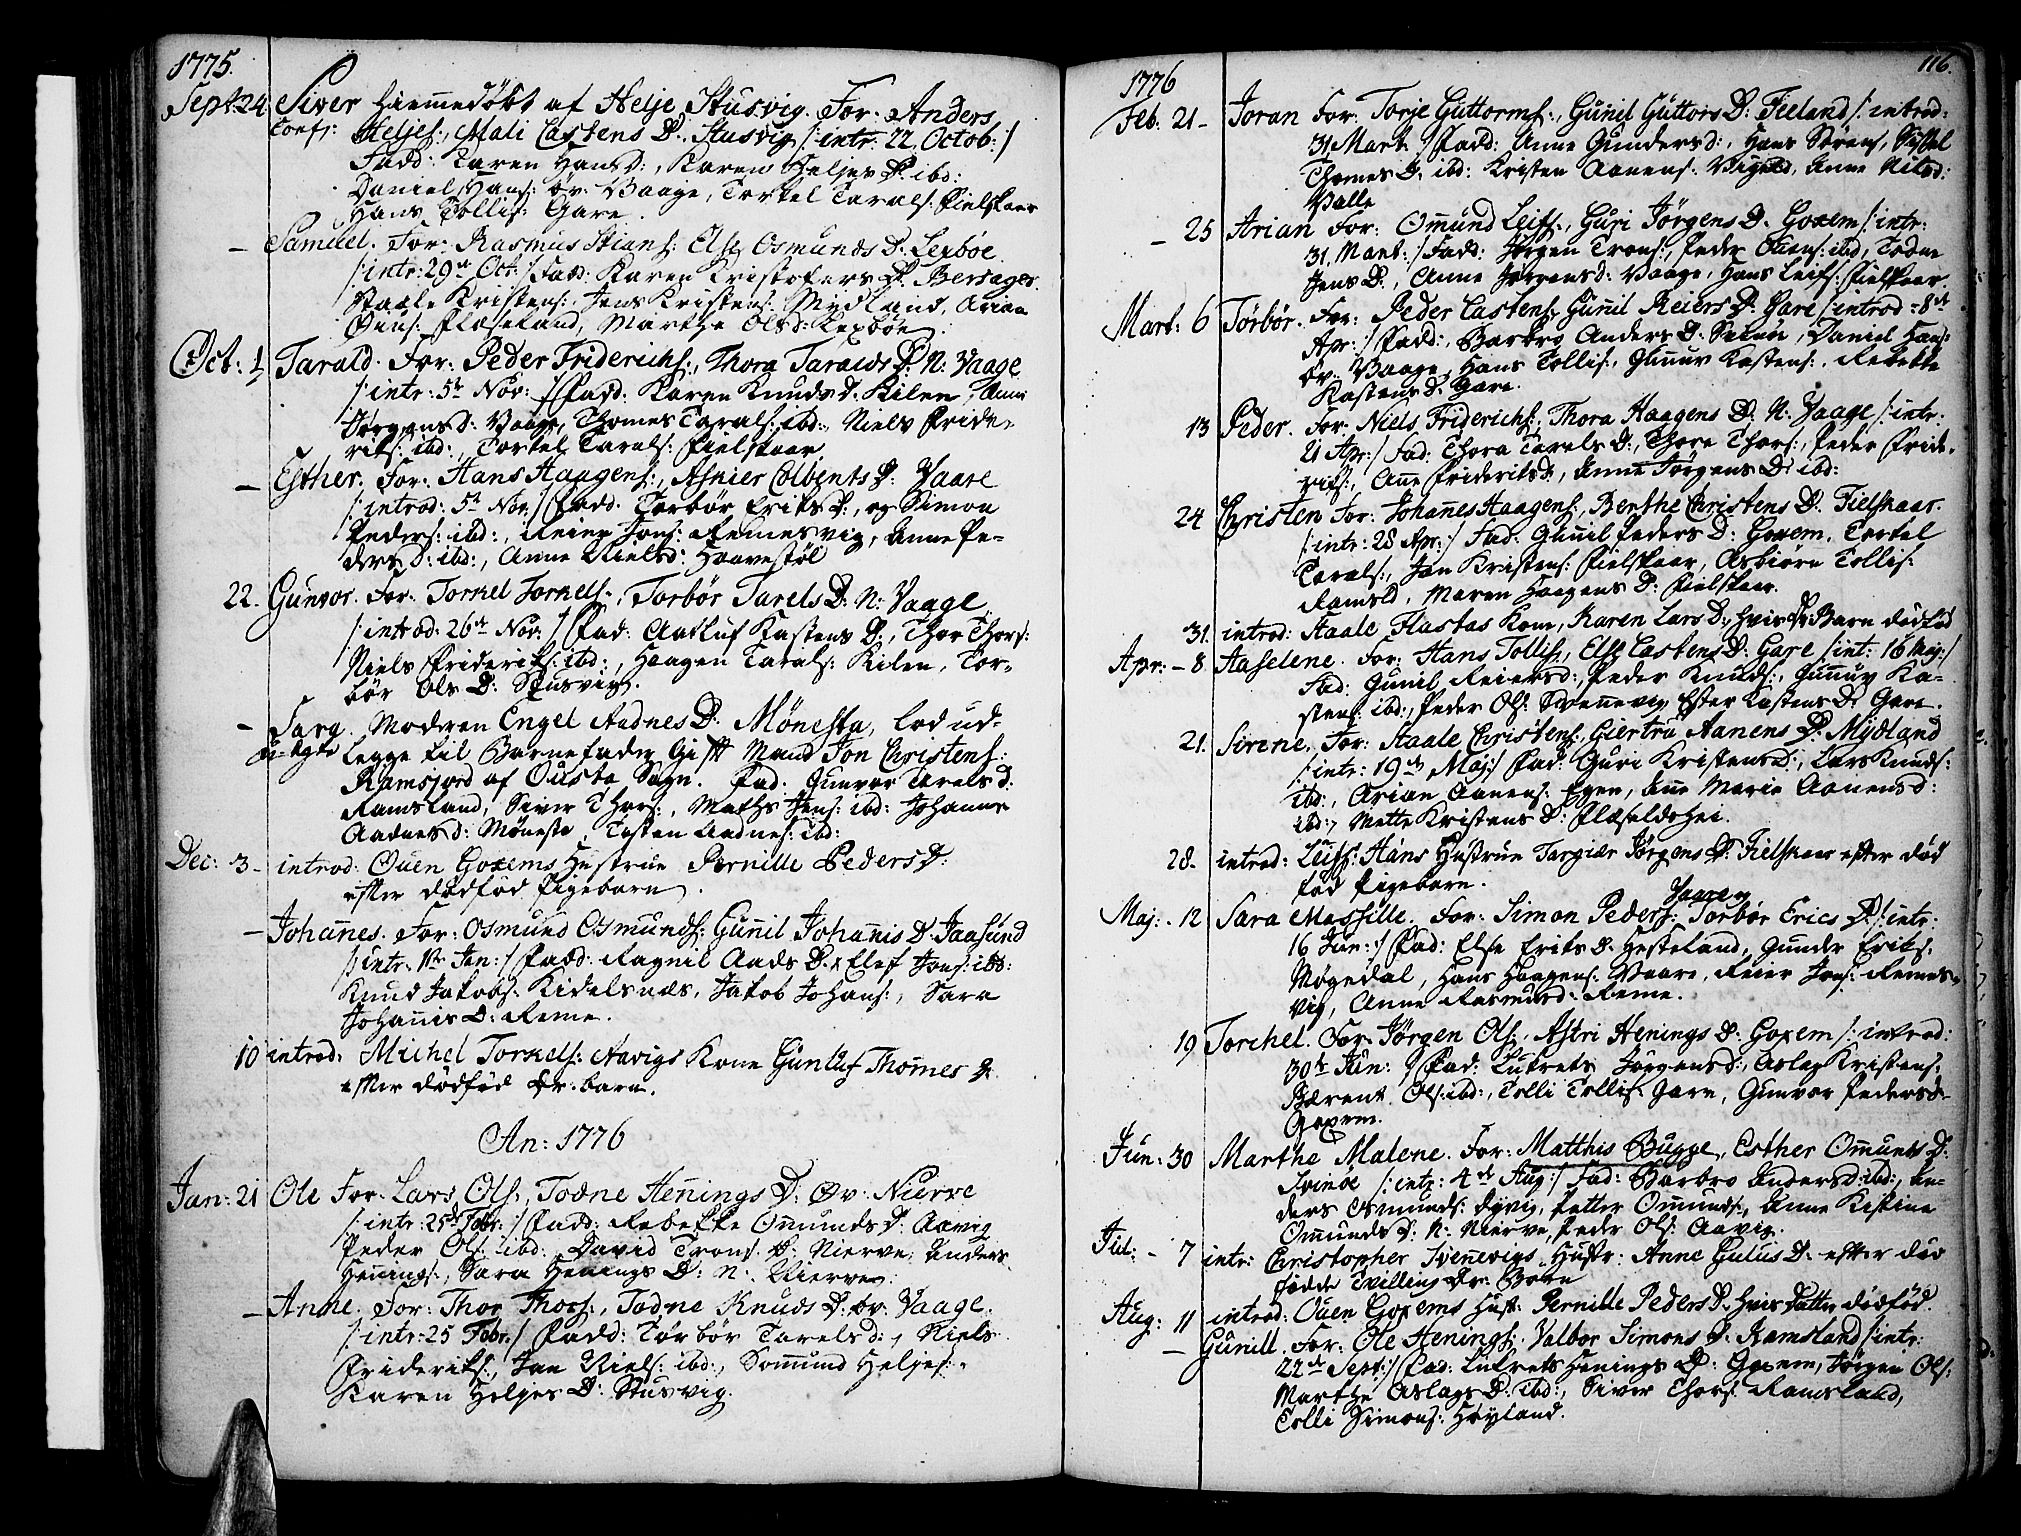 1775.
Sept: 24 Siver Hiemedöbt af Helje Stusvig. For: Anders
Conf: Heljes:, Mali Castens D. Stusvig /: intr: 22 Octob: /
Fadd: Taren Hans D:, Karen Heljes D. ibd:
Daniel Hans: öv: Vaage, Torkel Tarals: Fielskaar
Hans Tollis: Gare.
– Samuel. For: Rasmus Stians: Else Osmunds D. Lexböe
/: intr: 29de Oct: / Fadd: Karen Kristofers D. Bersager.
Staale Kristens:, Jens Kristens: Mydland, Arian
Öens: Plaseland, Marthe Ols D: Lexböe.
Oct: 1 Tarald. For: Peder Friderichs:, Thora Taralds D. N: Vaage
/: intr: 5te Nov: / Fadd: Karen Knuds D. Kilen, Anne
Jörgens D: Vaage, Thomes Tarals: ibd:, Niels Fride-
riks: ibd:, Torkel Tarals: Fielskaar.
– Esther. For: Hans Haagens:, Asnier Colbents D: Vaare
/: introd: 5te Nov: / Fadd: Torbör Eriks D:, og Simon
Peders: ibd:, Reier Jons: Remesvig, Anne Pe-
ders D: ibd:, Anne Niels D: Haavestöl
22. Gunvor. For: Tornel Tornels:, Torbör Tarels D: N: Vaage
/: introd: 26de Nov: / Fad: Aasluf Kastens D:, Thor Thors:
Niels Frideriks: ibd:, Haagen Tarals: Kilen, Tor-
bör Ols D: Stusvig.
– Sara, Modren Engel Aadnes D. Mönesta, lod ud-
u-ægte legge til Barnefader Gift Mand Jon Christens:
Ramsjord af Ousta Sogn. Fad: Gunvor Tarels D:
Ramsland, Siver Thors:, Mathis Jens: ibd: Johanne
Aadnes D: Möneste, Tosten Aadnes: ibd:
Dec: 3– introd: Ouen Goxems Hustrue Pernille Peders D:
efter dödfød Pigebarn.
– Johannes. For: Osmund Osmunds: Gunil Johannis D. Jaasund
/: intr: 1te Jan: / Fadd: Ragnil Aads D. Elef Jons: ibd:
Knud Jakobs: Kidelsnæs, Jakob Johans:, Sara
Johannis D: Reme.
10 introd: Michel Tornels: Aavigs Kone Gunluf Thomes D:
efter dödfød Dr: barn.
An: 1776
Jan: 21 Ole For: Lars Ols:, Todne Henings D: Öv: Nierve
/: intr: 25de Febr: / Fadd: Rebekke Omunds D: Aavig
Peder Ols: ibd: David Trons: D: Nierve, Anders
Henings:, Sara Henings D: N: Nierve.
– Anne. For: Thor Thors:, Todne Knuds D: öv: Vaage.
/: intr: 25 Febr: / Fadd: Törbör Tarels D:, Niels
Frideriks:, Jan Niels: ibd:, Somund Heljes:
Karen Heljes D: Stusvig.
116.
1776
Feb: 21– Joran For: Torje Guttorms:, Gunil Guttors D: Fieland /: introd:
31 Mart: / Fadd: Anne Gunders D:, Hans Sörens:, Sissel
Thomes D: ibd: Kristen Aanens: Vigeld, Anne Nils D:
Valle
– 25 Arian For: Omund Leifs:, Guri Jörgens D. Goxem /: intr:
31. Mart: / Fadd: Jörgen Trons:, Peder Ouens: ibd, Todne
Jens D:, Anne Jörgens D: Vaage, Hans Leifs: Fielskaar.
Mart: 6 Törbör. For: Peder Castens:, Gunil Reiers D. Gare /: introd: 8de
Apr: / Fadd: Barbro Anders D. Svinöe, Daniel Hans:
öv: Vaage, Hans Tollis:, Gunuv Kastens:, Rebekke
Kastens D: Gare.
13 Peder. For: Niels Friderichs:, Thora Haagens D. N: Vaage /: intr:
21 Apr: / Fad: Thora Tarels D:, Thore Thors:, Peder Fride-
riks:, Ane Frideriks D, Anne Jörgens D: ibd:
24 Christen For: Johannes Haagens:, Benthe Christens D. Fielskaar.
/: intr: 28 Apr: / Fad: Gunil Peders D: Goxem, Torkel
Tarals:, Jan Kristens: Fielskaar, Asbiörn Tollis:
Ramsld, Maren Haagens D: Fielskaar
31. introd: Staale Flastas Kone, Karen Lars D:, hvis Dr Barn dödfød
Apr: – 8 Aaselene. For: Hans Tollis:, Else Castens D: Gare /: int: 16 Maj: /
Fad: Gunil Reiers D:, Peder Knuds:, Gunuv Ka-
stens: ibd:, Peder Ols: Svennevig, Ester Kastens D: Gare.
21. Sirene. For: Staale Christens:, Giertru Aanens D. Mydland
/: intr: 19de Maj: / Fad: Guri Kristens D:, Lars Knuds:
ibd:, Arian Aanens: Egen, Ane Marie Aanens D:
ibd:, Mette Kristens D: Plaseldshei.
28. introd: Leifs: Hans Hustrue Targier Jörgens D: Fielskaar efter død
fød Pigebarn.
Maj: – 12 Sara Massille. For: Simon Peders: Vaare Torbör Erics D: /: intr:
16 Jun: / Fad: Else Eriks D: Hesteland, Gunder Eriks:
Mögedal, Hans Haagens: Vaare, Reier Jons: Remes-
vig, Anne Rasmus D: Reme.
19 Torchel. For: Jörgen Ols:, Astri Henings D: Goxem /: introd:
30te Jun: / Fad: Lukrets Jörgens D:, Aslag Kristens:
Bærent Ols: ibd:, Tolli Tollis: Gare, Gunvor Peders D:
Goxem.
Jun: 30 Marthe Malene. For: Matthis Bugge, Esther Omunds D:
Svinöe /: intr: 4de Aug: / Fad: Barbro Anders D: ibd:, An-
ders Osmunds: Dyvig, Petter Omunds:, Anne Kistine
Omunds D: N: Nierve, Peder Ols: Aavig.
Jul: – 7 intr: Christopher Svennevigs Hustr: Anne Gulus D: efter død
fødde Tvilling Dr: Børn
Aug: 11 introd: Ouen Goxems Hust: Pernille Peders D: hvis Datter dödfød.
– Gunild. For: Ole Henings:, Valbor Simons D. Ramsland /: intr:
22de Sept: / Fad: Lukrets Henings D: Goxem, Jörgen Ols:
Marthe Aslags D: ibd:, Siver Thors: Ramsland,
Tolli Simons: Höyland.